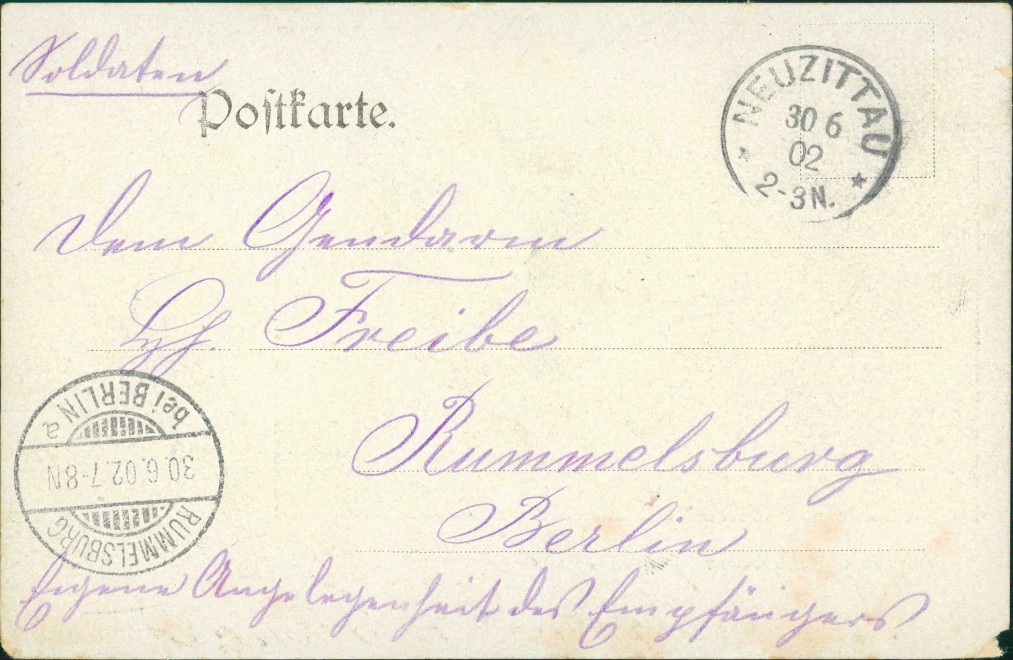 Soldaten
Postkarte.
NEUZITTAU
30 6
02
2-3N.
Dem Gendarm
Freibe
Rummelsburg
Berlin
bei BERLIN
a
30.6.02.7-8N
RUMMELSBURG
Eigene Angelegenheit des Empfängers